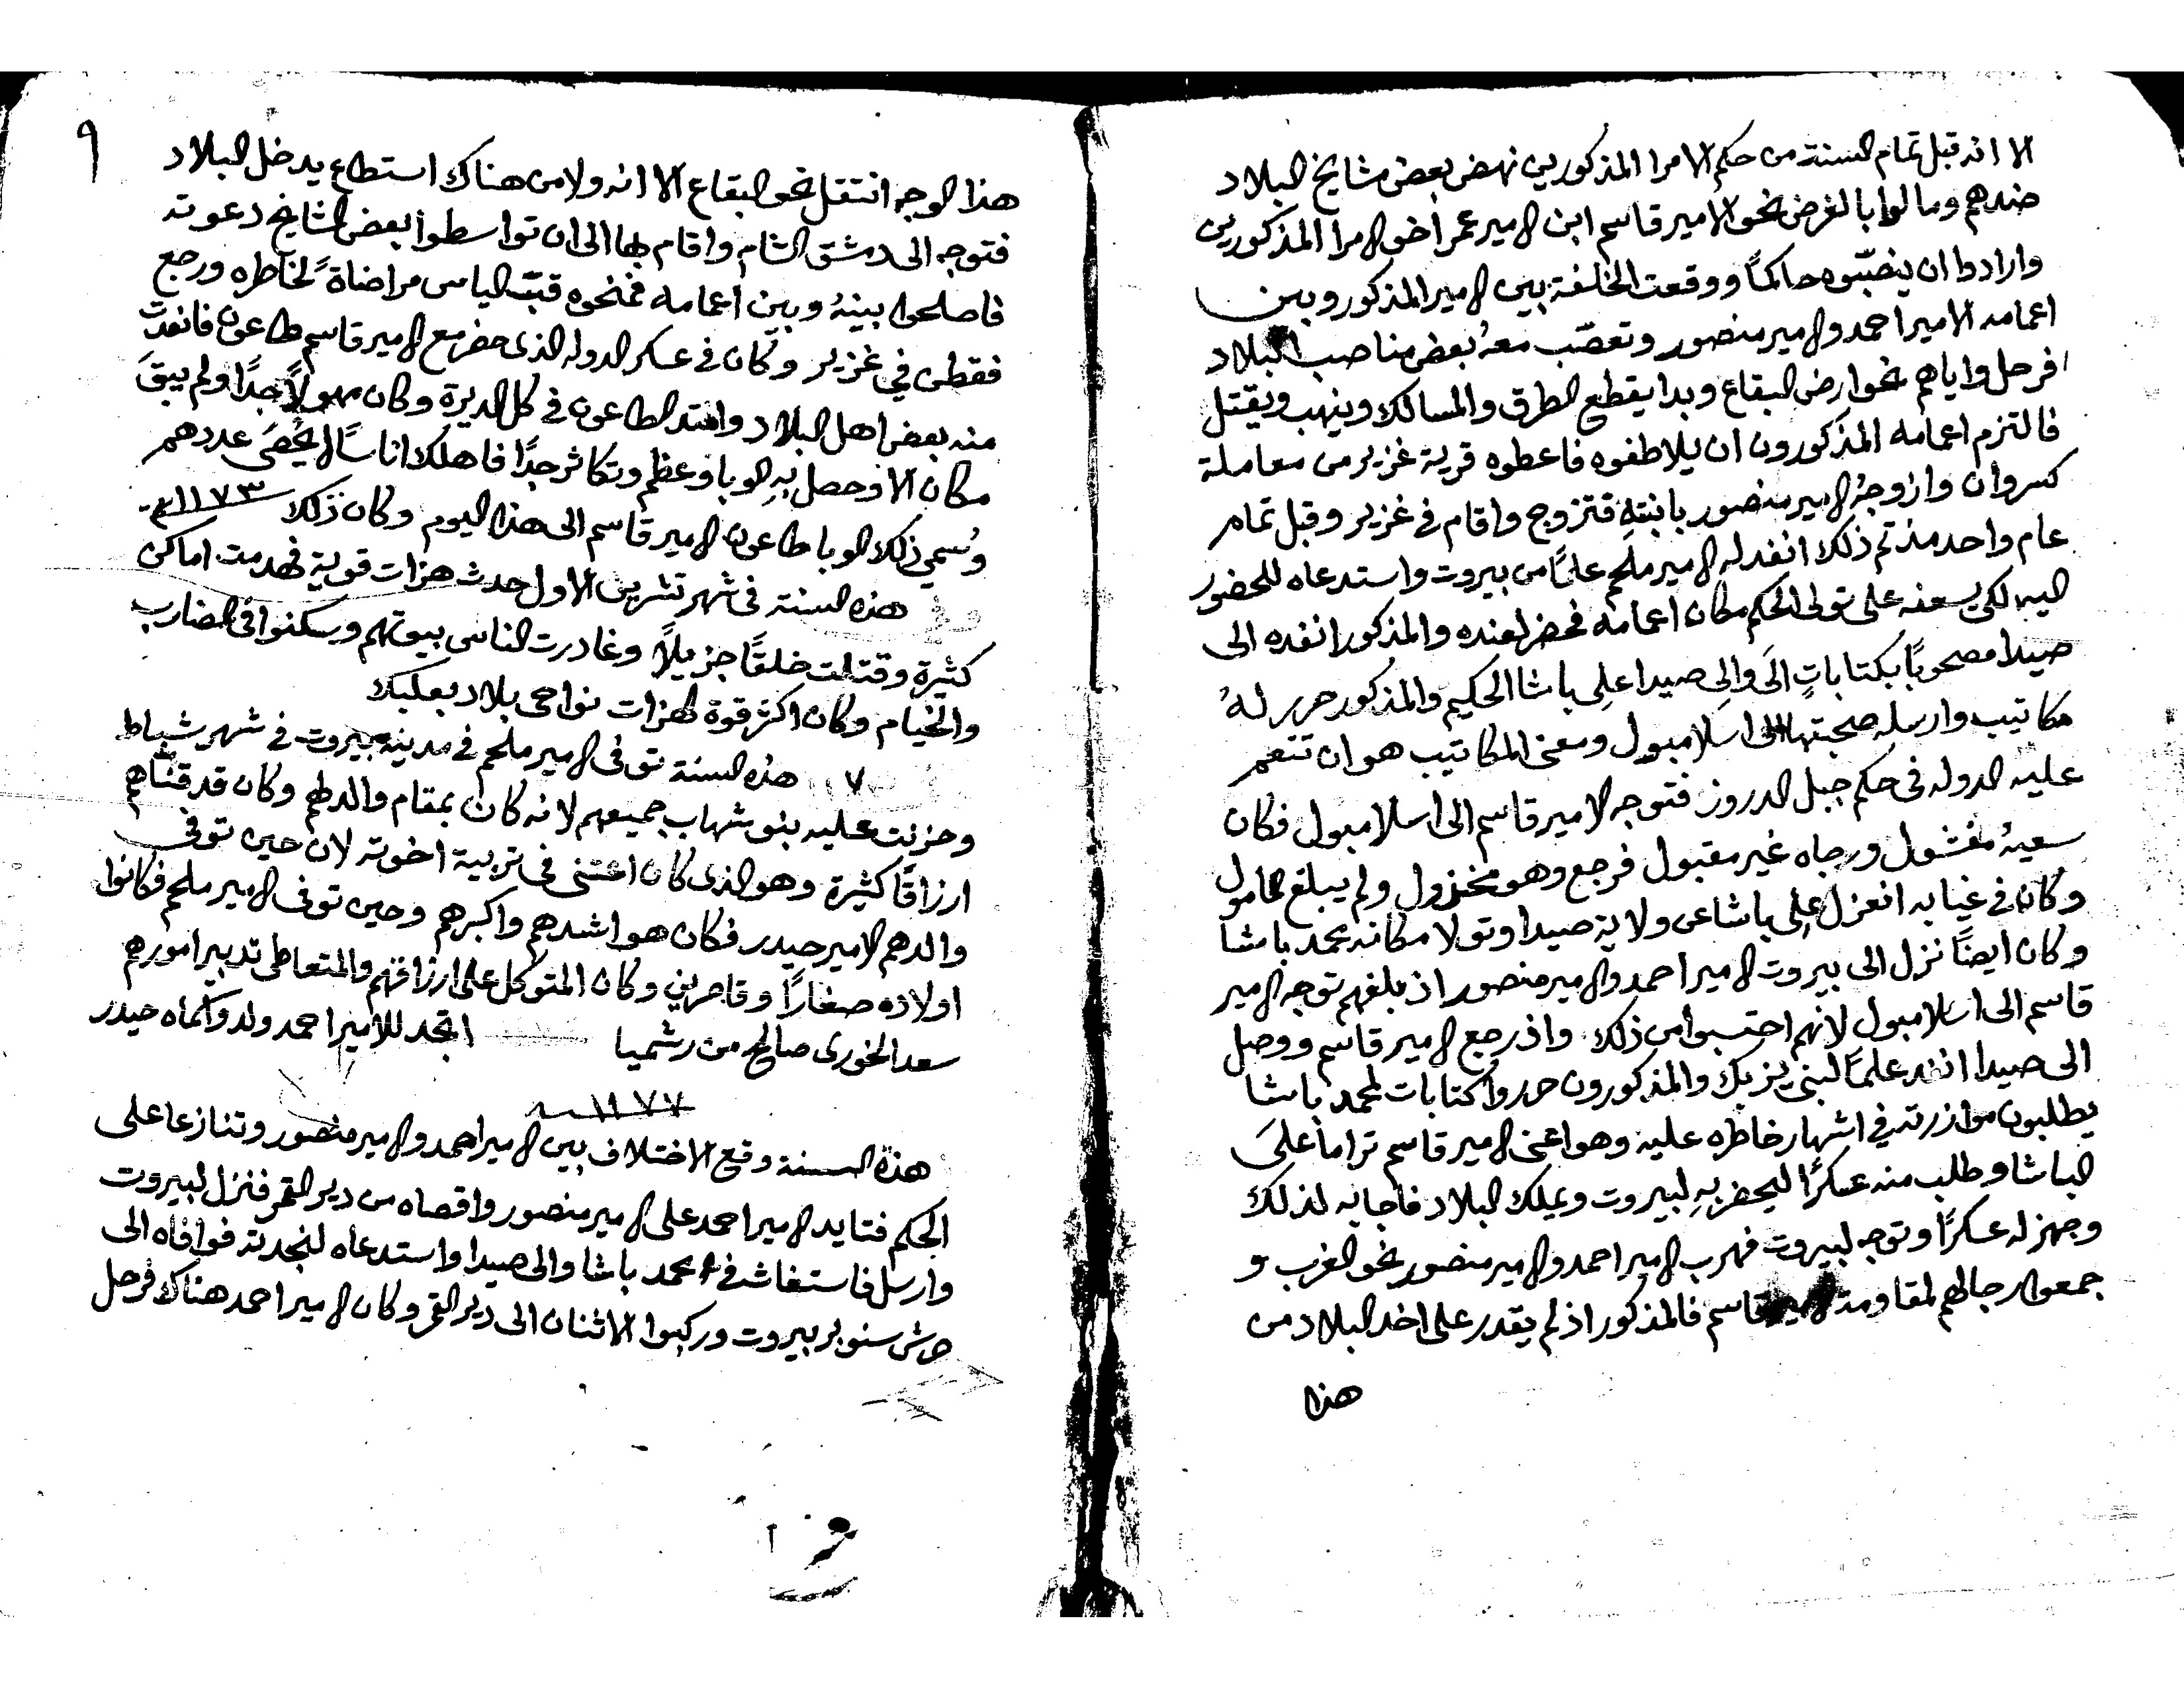 الا انه قبل تمام السنة من حكم الامرا المذكورين نهض بعض مشايخ البلاد
ضدهم ومالوا بالغرض نحو الامير قاسم ابن الامير عمر اخو الامرا المذكورين
وارادوا ان ينصّبوه حاكمًا ووقعت الخلفة بين الامير المذكور وبين
اعمامه الامير احمد والامير منصور وتعصّب معهُ بعض مناصب البلاد
فرحل واياهم نحو ارض البقاع وبدا يقطع الطرق والمسالك وينهب ويقتل
فالتزم اعمامه المذكورون ان يلاطفوه فاعطوه قرية غزير من معاملة
كسروان وازوجهُ الامير منصور بابنته فتزوج واقام في غزير وقبل تمام
عام واحد منذ تم ذلك انفد له الامير ملحم علمًا من بيروت واستدعاه للحضور
اليه لكي يسعفه على تولى الحكم مكان اعمامه فحضر لعنده والمذكور انفده الى
صيدا مصحوبًا بكتاباتٍ الى والي صيدا علي باشا الحكيم والمذكور حرر لهُ
مكاتيب وارسله صحبتها الى اسلامبول ومعنى المكاتيب هو ان تنعم
عليه الدوله في حكم جبل الدروز فتوجه الامير قاسم الى اسلامبول فكان
سعيهُ مفشول ورجاه غير مقبول فرجع وهو مخذول ولم يبلغ المامول
وكان في غيابه انعزل علي باشا عن ولاية صيدا وتولا مكانه محمد باشا
وكان ايضًا نزل الى بيروت الامير احمد والامير منصور اذ بلغهم توجه الامير
قاسم الى اسلامبول لانهم احتسبوا من ذلك واذ رجع الامير قاسم ووصل
الى صيدا انفد علمًا لبني يزبك والمذكورون حرروا كتابات لمحمد باشا
يطلبون موازرته في اشهار خاطره عليه وهو اعنى الامير قاسم تراما على
الباشا وطلب منه عسكرًا ليحضر بهِ لبيروت ويملك البلاد فاجابه لذلك
وجهز له عسكرًا وتوجه لبيروت فهرب الامير احمد والامير منصور نحو الغرب و
جمعوا رجالهم لمقاومة الامير قاسم فالمذكور اذ لم يقدر على اخد البلاد من
هذا
٩
هذا الوجه انتقل نحو البقاع الا انه ولا من هناك استطاع يدخل البلاد
فتوجه الى دمشق الشام واقام بها الى ان تواسطوا بعض المشايخ دعوته
فاصلحوا بينهُ وبين اعمامه فمنحوه قبّ الياس مراضاةً لخاطره ورجع
فقطن في غزير وكان في عسكر الدوله الذي حضر مع الامير قاسم طاعون فانعدت
منه بعض اهل البلاد وامتد الطاعون في كل الديرة وكان مهولاً جدًا ولم يبقَ
مكان الا وحصل بهِ الوبا وعظم وتكاثر جدًا فاهلك اناسًا لا يُحصَى عددهم
وسُمي ذلك الوبا طاعون الامير قاسم الى هذا اليوم وكان ذلك سنة ١١٧٣
هذه السنة في شهر تشرين الاول حدث هزات قوية فهدمت اماكن
كثيرة وقتلت خلقًا جزيلاً وغادرت الناس بيوتهم وسكنوا في المضارب
والخيام وكان اكثر قوة الهزات نواحي بلاد بعلبك
هذه السنة توفى الامير ملحم في مدينة بيروت في شهر شباط
وحزنت عليه بنو شهاب جميعهم لانه كان بمقام والدهم وكان قد قناهم
ارزاقًا كثيرة وهو الذي كان اعتنى في تربية اخوته لان حين توفى
والدهم الامير حيدر فكان هو اشدهم واكبرهم وحين توفى الامير ملحم فكانوا
اولاده صغارًا وقاصرين وكان المتوكل على ارزاقهم والمتعاطى تدبير امورهم
سعد الخوري صالح من رشميا اتجد للامير احمد ولد واسماه حيدر
١١٧٧ سنة
هذة السنة وقع الاختلاف بين الامير احمد والامير منصور وتنازعا على
الحكم فتايد الامير احمد على الامير منصور واقصاه من دير القمر فنزل لبيروت
وارسل فاستغاث في محمد باشا والى صيدا واستدعاه لنجدته فوافاه الى
حرش سنوبر بيروت وركبوا الاثنان الى دير القمر وكان الامير احمد هناك فرحل